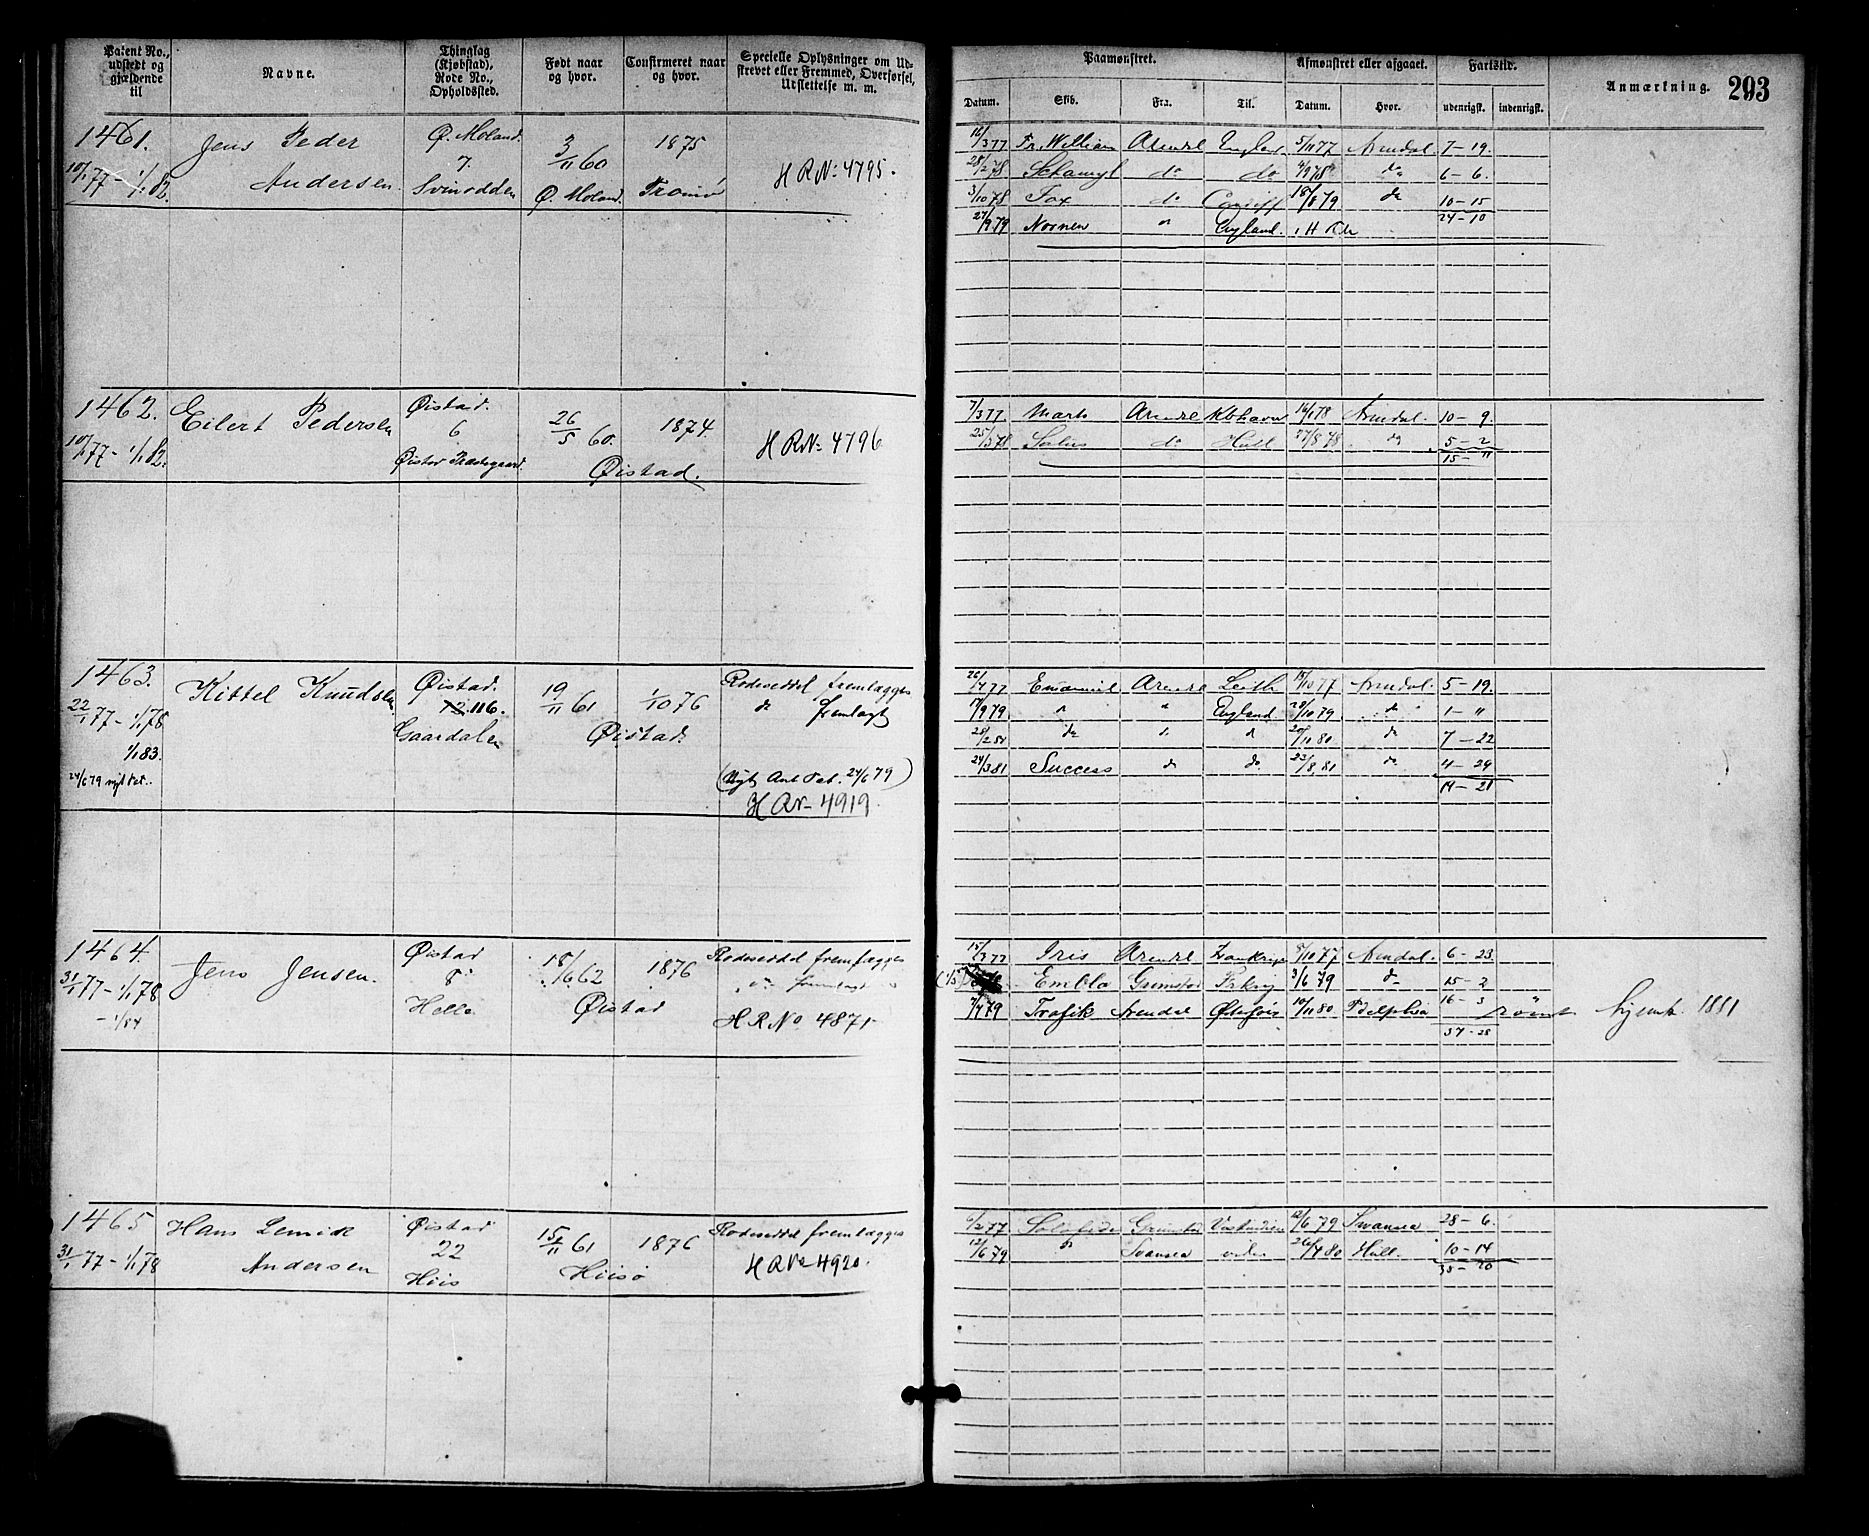 Patent No., udstedt og gjældende til
Navne.
Thinglag (Kjøbstad), Rode No., Opholdssted.
Født naar og hvor.
Confirmeret naar og hvor.
Specielle Oplysninger om Udskrevet eller Fremmed, Overførsel, Udslettelse m. m.
Paamønstret.
Afmønstret eller afgaaet.
Fartstid.
Anmærkning.
293
Datum.
Skib.
Fra.
Til.
Datum.
Hvor.
udenrigsk.
indenrigsk.
1461.
10/1 77 - 1/1 82.
Jens Peder
Andersen.
Ø. Moland.
7.
Svinodden
3/11 60
Ø. Moland.
1875
Tromø
H R No 4795.
16/3 77 Fr. William Arendl England 5/11 77 Arendal. 7-19.
28/2 78 do do 4/9 78 do 6-6.
3/10 78 Fox do Cardiff 18/8 79 do 10-15
24-10
27/9 79 Nornen " England. i H Rl
1462.
10/1 77 - 1/1 82.
Eilert Pedersen
Øistad.
6
Øistad Præstegaard.
26/5 60.
1874.
Øistad.
H R No 4796
7/3 77 Mark Arendl Kbhavn 14/1 78 Arendal. 10-9.
25/3 78 do Hull 27/8 78 do 5-2
15-11
1463.
22/1 77 - 1/1 78
1/1 83.
24/6 79 nyt Pat.
Kittel Knudsen
Øistad.
12. 116.
Gaardalen
19/11 61
1/10 76
Øistad.
Rodeseddel fremlægges
do fremlagt
(Nyt Ant Pat. 24/6 79)
H R No 4919.
26/4 77 Emanuel Arendl Leith 15/10 77 Arendal. 5-19.
17/9 79 " " England 28/10 79 do 1-"
28/2 80 do " d 20/11 80 do 7-22
24/3 81 Success do do 23/8 81 do 4-29
1464.
31/1 77 - 1/1 78
- 1/1 84
Jens Jensen.
Øistad
8
Helle
18/6 62
1876
Øistad
Rodeseddel fremlægges
do fremlagt
H R No 4871
15/3 77 Iris Arendl Frankrige 8/10 77 Arendal. 6-23
Embla Grimstad 3/6 79 do 15-2
7/7 79 Trafik Arendal 10/11 80 Pdelphia 16-3 rømt hjemk. 1881
1465
31/1 77 - 1/1 78
Hans
Andersen
Øistad
22
Hiis
15/11 61
1876
Hiisø
Rodeseddel fremlægges
H R No 4920.
6/2 77 Grimstad Vestindien 12/6 79 Swansea 28-6.
12/6 79 do Svansea 26/4 80 Hull. 10-14